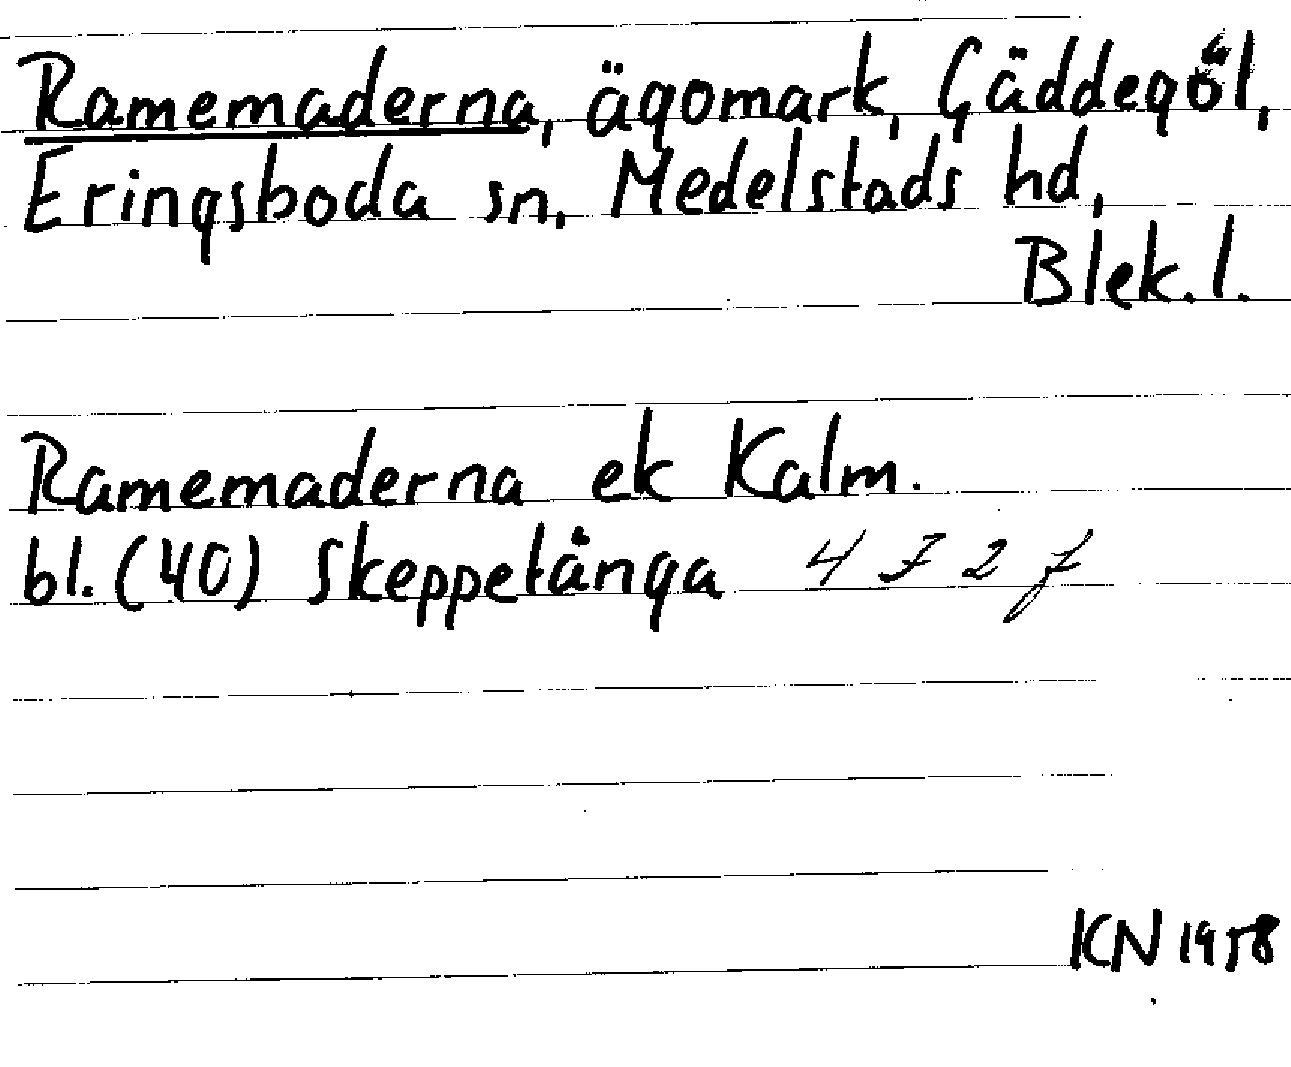 Ramemaderna, ägomark, Gäddegöl,
Eringsboda sn, Medelstads hd,
Blek. l.
Ramemaderna ek Kalm.
bl. (40) Skeppetånga 4 F 2 f
KN 1958